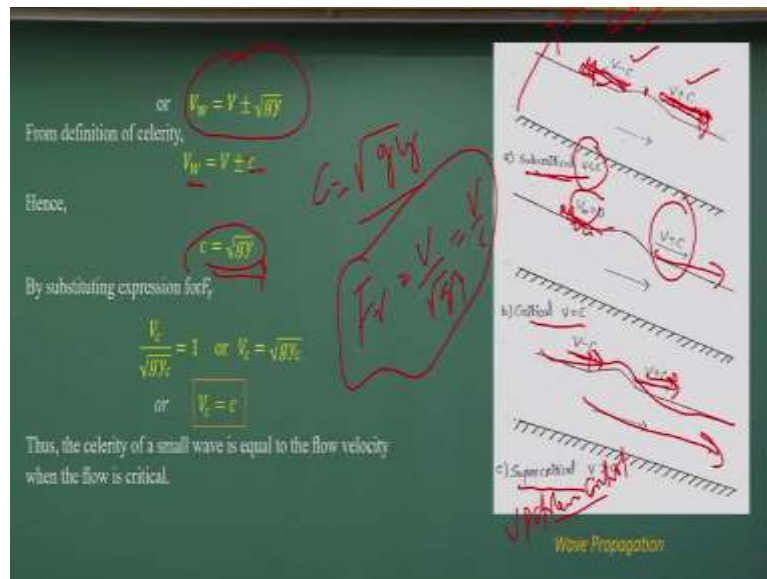 or V_W = V ± √gy
From definition of celerity,
V_W = V ± c
Hence,
c = √gy
By substituting expression for F_r
V_c / √gy_c = 1 or V_c = √gy_c
or V_c = c
Thus, the celerity of a small wave is equal to the flow velocity
when the flow is critical.
C = √gy
Fr = V / √gy = V / c
V-c
V+c
a) Subcritical V<c
V_w=0
V+c
b) Critical V=c
V-c
V+c
c) Supercritical V
Wave Propagation